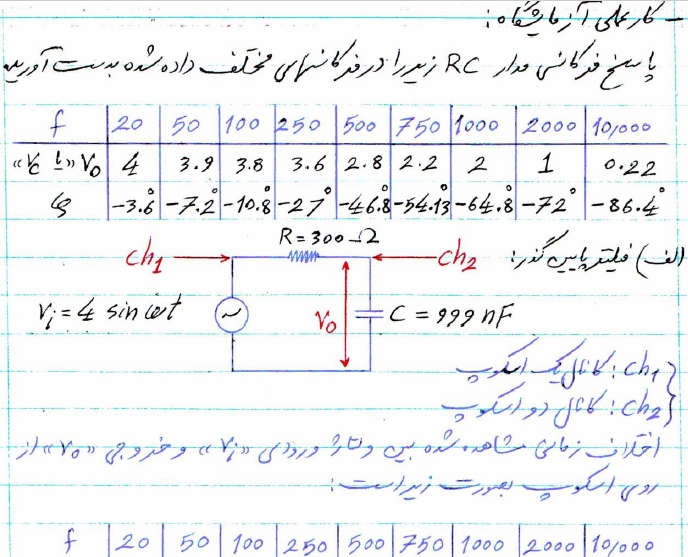 - کار عملی آزمایشگاه:
پاسخ فرکانسی مدار RC زیر را در فرکانسهای مختلف داده شده بدست آورید
f 20 50 100 250 500 750 1000 2000 10,000
«Vc یا» Vo 4 3.9 3.8 3.6 2.8 2.2 2 1 0.22
φ -3.6° -7.2° -10.8° -27° -46.8° -54.13° -64.8° -72° -86.4°
الف) فیلتر پایین گذر:
R=300 Ω
ch1
ch2
Vi = 4 sin ωt
Vo
C = 999 nF
ch1: کانال یک اسکوپ
ch2: کانال دو اسکوپ
اختلاف زمانی مشاهده شده بین ولتاژ ورودی «Vi» و خروجی «Vo» از
روی اسکوپ بصورت زیر است:
f 20 50 100 250 500 750 1000 2000 10,000